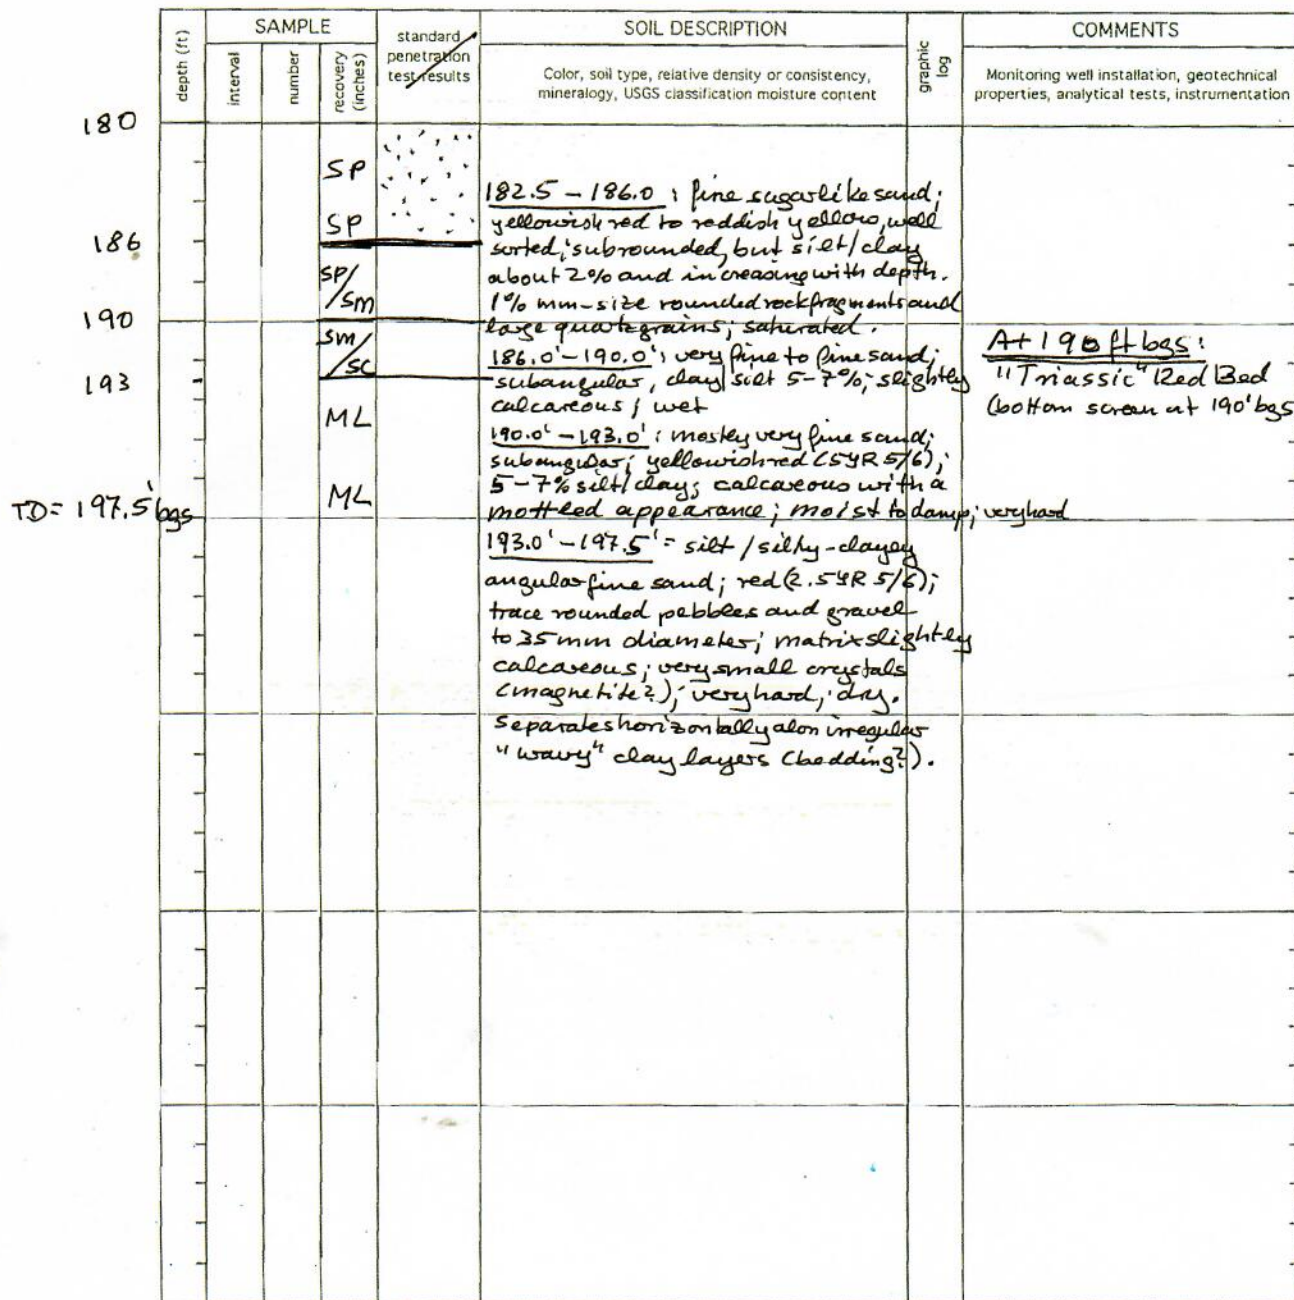 depth (ft)
SAMPLE
interval
number
recovery
(inches)
standard
penetration
test results
SOIL DESCRIPTION
Color, soil type, relative density or consistency,
mineralogy, USGS classification moisture content
graphic
log
COMMENTS
Monitoring well installation, geotechnical
properties, analytical tests, instrumentation
180
SP
SP
186
SP/
/SM
190
SM/
/SC
193
ML
ML
TD= 197.5' bgs
182.5 – 186.0 : fine sugarlike sand;
yellowish red to reddish yellow, well
sorted; subrounded, but silt/clay
about 2% and increasing with depth.
1% mm-size rounded rock fragments and
large quartz grains; saturated.
186.0' – 190.0' : very fine to fine sand;
subangular, clay/silt 5-7%; slightly
calcareous; wet
190.0' – 193.0' : mostly very fine sand;
subangular; yellowish red (5YR 5/6);
5-7% silt/clay; calcareous with a
mottled appearance; moist to damp; very hard
193.0' – 197.5' = silt / silty-clayey
angular fine sand; red (2.5YR 5/6);
trace rounded pebbles and gravel
to 35 mm diameter; matrix slightly
calcareous; very small crystals
(magnetite?); very hard; dry.
Separates horizontally alon irregular
"wavy" clay layers (bedding?).
At 190 ft bgs:
"Triassic" Red Bed
(bottom screen at 190' bgs